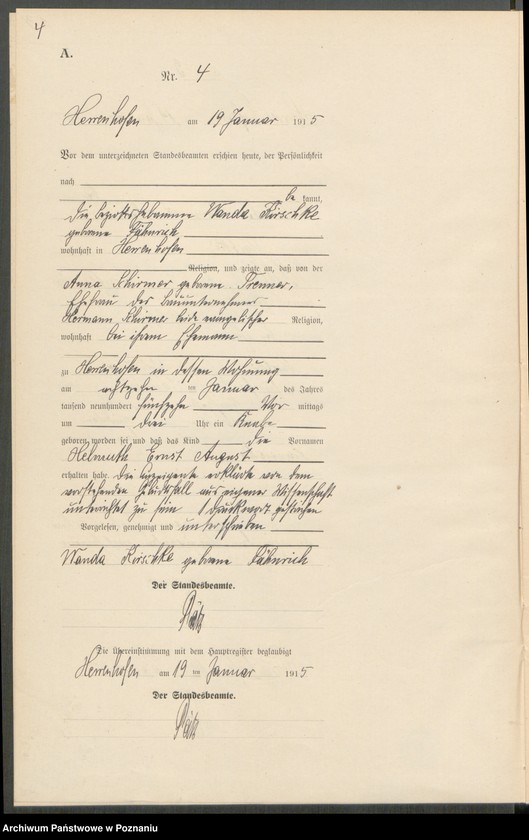 4
A.
Nr. 4
Herrenhofen am 19 Januar 1915
Vor dem unterzeichneten Standesbeamten erschien heute, der Persönlichkeit
nach
be kannt,
die Bezirkshebamme Wanda Kirschke
geborene Fähnrich
wohnhaft in Herrenhofen
Religion, und zeigte an, daß von der
Anna Schirmer geborene Trenner,
Ehefrau des Bauunternehmers
Hermann Schirmer beide evangelischer Religion,
wohnhaft bei ihrem Ehemann
zu Herrenhofen in dessen Wohnung
am achtzehn ten Januar des Jahres
tausend neunhundert fünfzehn Vor mittags
um drei Uhr ein Knabe
geboren worden sei und daß das Kind die Vornamen
Helmuth Ernst August
erhalten habe. Die Anzeigende erklärte von dem
vorstehenden Geburtsfall aus eigener Wissenschaft
unterrichtet zu sein 1 Druckwort gestrichen
Vorgelesen, genehmigt und unterschrieben
Wanda Kirschke geborene Fähnrich
Der Standesbeamte.
Die Übereinstimmung mit dem Hauptregister beglaubigt
Herrenhofen am 19 ten Januar 1915
Der Standesbeamte.
Archiwum Państwowe w Poznaniu